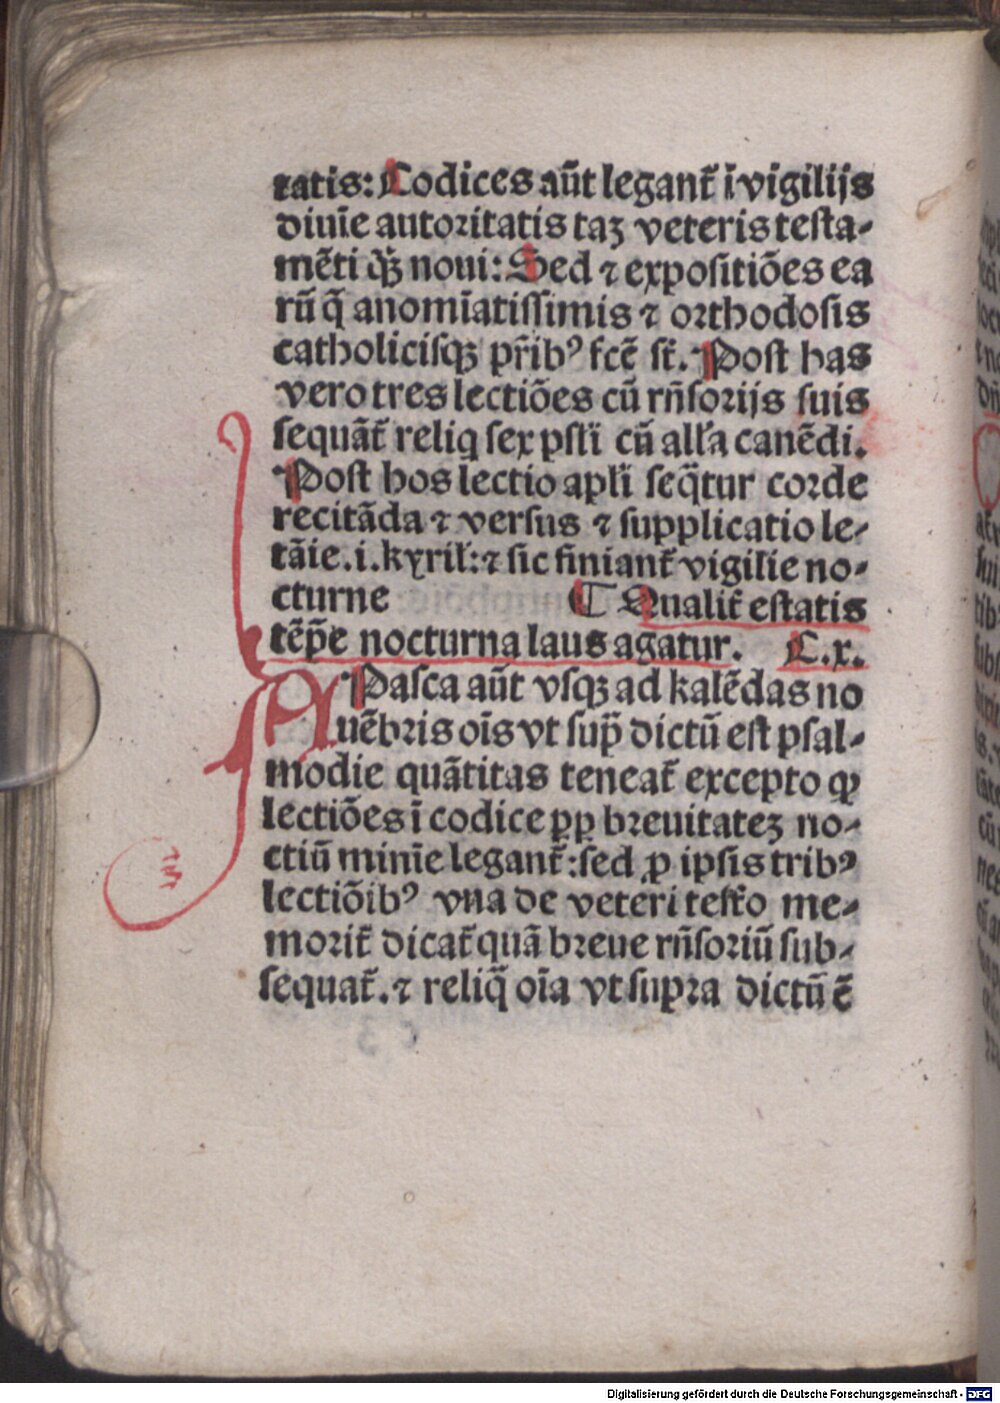 tatis: Codices aūt legant̄ ī vigilijs
diuīe autoritatis taꝫ veteris testa-
mēti qꝫ noui: Sed ⁊ expositiōes ea
rū q̄ anomīatissimis ⁊ orthodosis
catholicisqꝫ pr̄ibꝰ fcē st̄. Post has
vero tres lectiōes cū rn̄sorijs suis
sequāt̄ reliq sex psl̄i cū all'a canēdi.
Post hos lectio apl̄i seq̄tur corde
recitāda ⁊ versus ⁊ supplicatio le-
tāie .i. kyriel': ⁊ sic finiant̄ vigilie no-
cturne ¶ Qualit̄ estatis
tēp̄e nocturna laus agatur. C.x.
A Pasca aūt vsqꝫ ad kalēdas no
uēbris oīs vt sup̄ dictū est psal-
modie quātitas teneat̄ excepto ꝙ
lectiōes ī codice ꝓpꝑ breuitateꝫ no-
ctiū minīe legant̄: sed ꝓ ipsis tribꝰ
lectiōibꝰ vna de veteri testt̄o me-
morit̄ dicat̄ quā breue rn̄soriū sub-
sequat̄. ⁊ reliq̄ oīa vt supra dictū ē
Digitalisierung gefördert durch die Deutsche Forschungsgemeinschaft - DFG